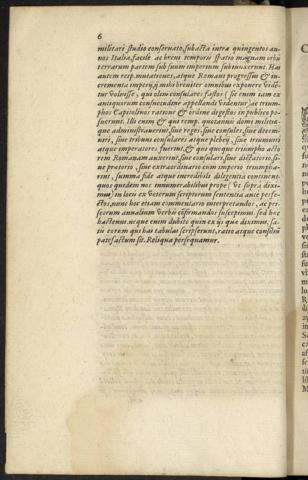 6
militari studio conseruato, subacta intra quingentos an-
nos Italia, facile ac breui temporis spatio magnam orbis
terrarum partem sub suum imperium subiunxerunt. Has
autem reip. mutationes, atque Romani progressus & in-
crementa imperij, mihi breuiter omnibus exponere viden-
tur voluisse, qui olim consulares fastos (sic enim iam ex
antiquorum consuetudine appellandi videntur) ac trium-
phos Capitolinos ratione & ordine digestos in publico po-
suerunt. Illi enim & qui remp. quotannis domi militiæ-
que administrauerint, siue reges, siue consules, siue decem-
uiri, siue tribuni consulares atque plebei, siue triumuiri
atque imperatores fuerint, & quo quoque triumpho acto
rem Romanam auxerint, siue consulari, siue dictatorio si-
ue prætorio, siue extraordinario cum imperio triumpha-
rent, summa fide atque incredibili diligentia continent.
quos quidem nos innumerabilibus prope (vt supra dixi-
mus) in locis ex veterum scriptorum sententia ante perfe-
ctos, nunc hoc etiam commentario interpretandos, ac pri-
scorum annalium verbis confirmandos suscepimus. sed hæc
hactenus. neque enim dubito quin ex ijs quæ diximus, sa-
tis extrem qui has tabulas scripserunt, ratio atque consilium
patefactum sit. Reliqua persequamur.